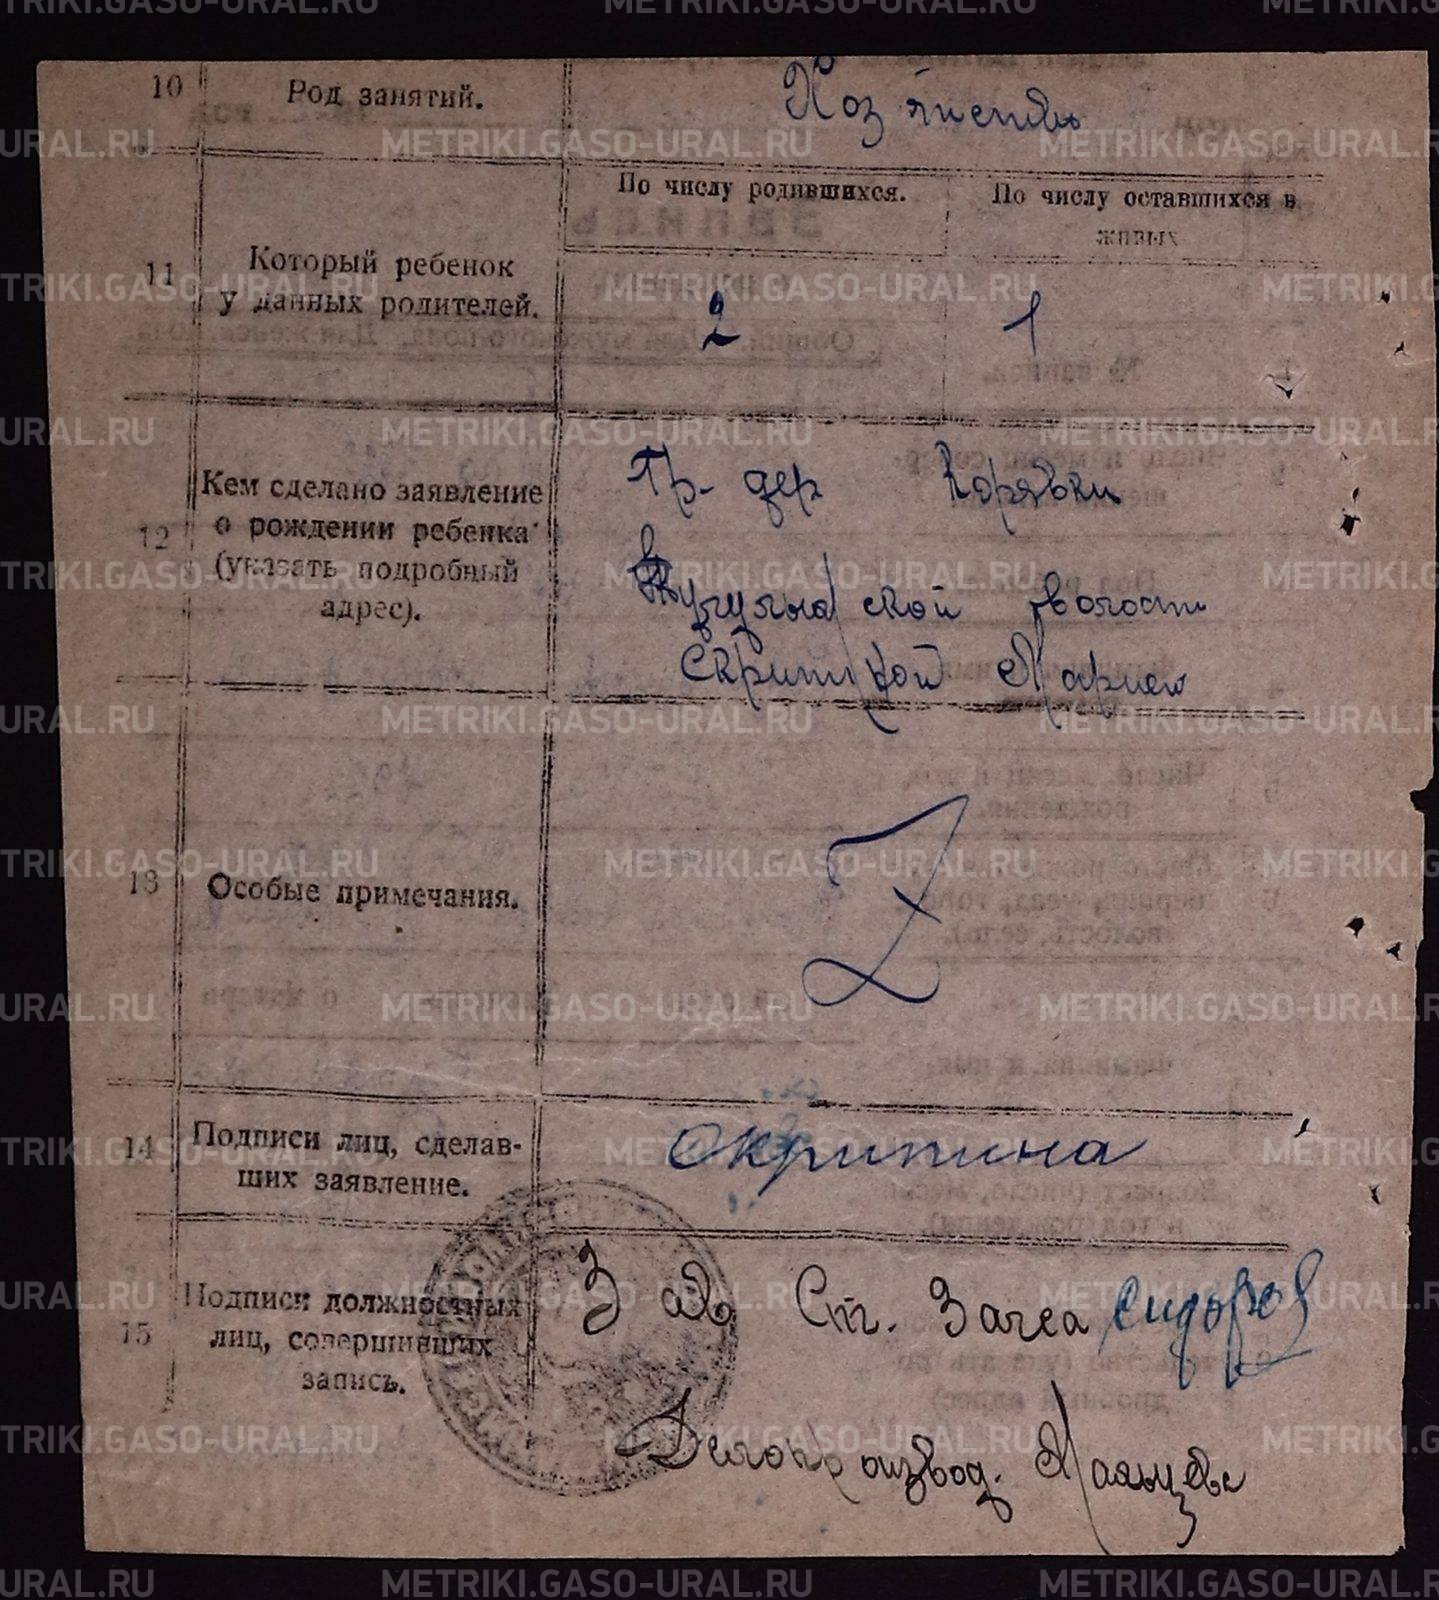 10 Род занятий. Хозяйство
По числу родившихся. По числу оставшихся в живых
11 Который ребенок
у данных родителей. 2 1
Гр. дер Корявки
12 Кем сделано заявление
о рождении ребенка
(указать подробный
адрес).
ской волости
Скрипиной Марией
13 Особые примечания.
14 Подписи лиц, сделав-
ших заявление. Скрипина
15 Подписи должностных
лиц, совершивших
запись.
Зав Ст. Загса Сидоров
Делопроизвод.
METRIKI.GASO-URAL.RU